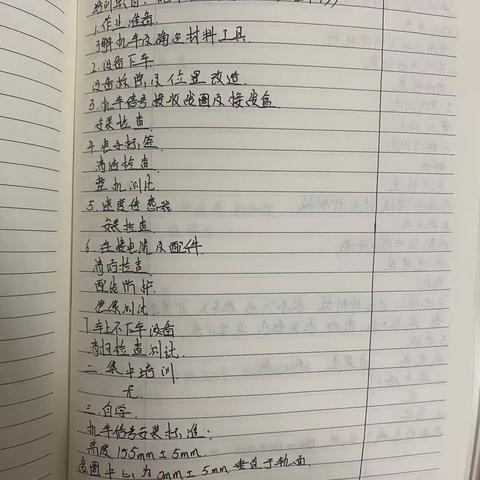 1.作业准备
了解机车及确定材料工具
2.设备下车
设备故障及位置改造
3.机车信号接收线圈及接线盒
安装检查
4.电子标签
清洁检查
整机测试
5.速度传感器
安装检查
6.连接电缆及配件
清洁检查
配线防护
绝缘测试
7.车上不下车设备
清扫检查测试
二.集中培训
无.
三.自学.
机车信号安装标准:
高度155mm±5mm.
线圈中心为0mm±5mm垂直于轨面.